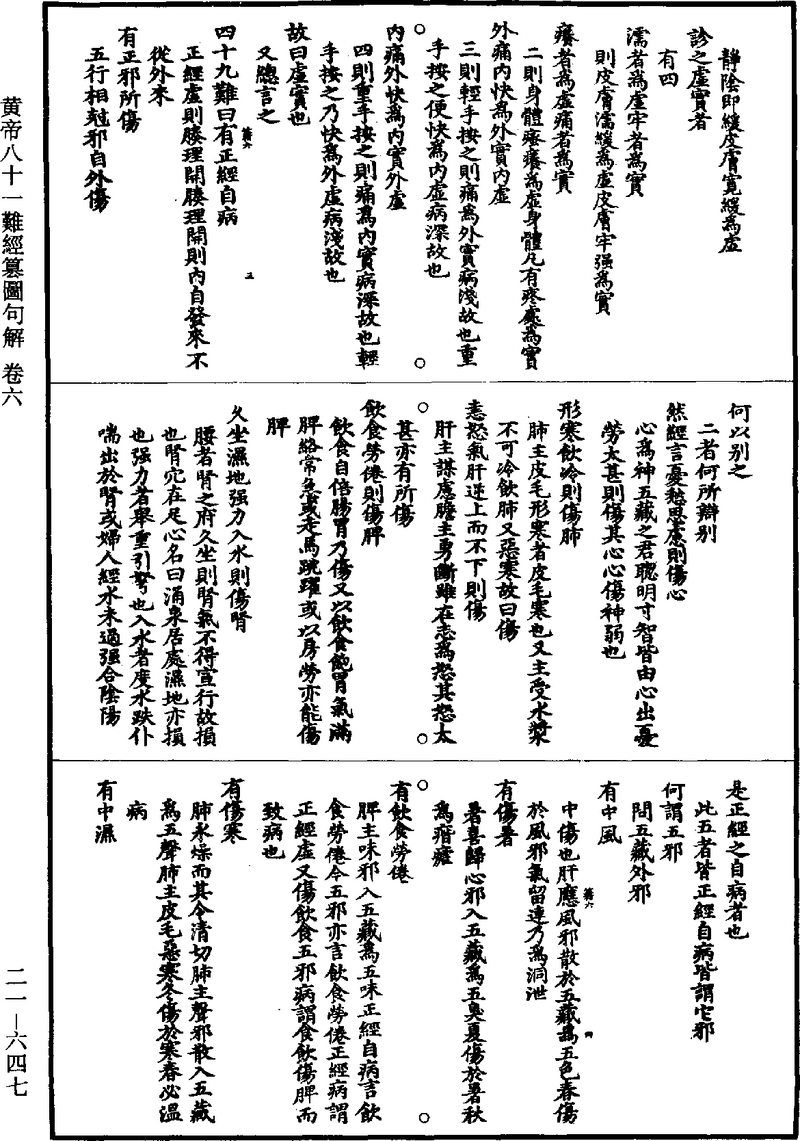 靜陰即緩皮膚寬緩為虛
診之虛實者
有四
濡者為虛牢者為實
則皮膚濡緩為虛皮膚牢强為實
癢者為虛痛者為實
二則身體痒癢為虛身體凡有疼處為實
外痛內快為外實內虛
三則輕手按之則痛為外實病淺故也重
手按之便快為內虛病深故也
內痛外快為內實外虛
四則重手按之則痛為內實病深故也輕
手按之乃快為外虛病淺故也
故曰虛實也
又總言之
四十九難曰有正經自病
正經虛則腠理開腠理開則內自發來不
從外來
有正邪所傷
五行相尅邪自外傷
何以別之
二者何所辯別
然經言憂愁思慮則傷心
心為神五藏之君聰明寸智皆由心出憂
勞太甚則傷其心心傷神弱也
形寒飲冷則傷肺
肺主皮毛形寒者皮毛寒也又主受水漿
不可冷飲肺又惡寒故曰傷
恚怒氣肝逆上而不下則傷
肝主謀慮膽主勇斷雖在志為怒其怒太
甚亦有所傷
飲食勞倦則傷脾
飲食自倍腸胃乃傷又以飲食飽胃氣滿
脾絡常急或走馬跳躍或以房勞亦能傷
脾
久坐濕地强力入水則傷腎
腰者腎之府久坐則腎氣不得宣行故損
也腎穴在足心名曰涌泉居處濕地亦損
也强力者舉重引弩也入水者度水跌仆
喘出於腎或婦人經水未過强合陰陽
是正經之自病者也
此五者皆正經自病皆謂它邪
何謂五邪
問五藏外邪
有中風
中傷也肝應風邪散於五藏為五色春傷
於風邪氣留連乃為洞泄
有傷暑
暑喜歸心邪入五藏為五臭夏傷於暑秋
為痎瘧
有飲食勞倦
脾主味邪入五藏為五味正經自病言飲
食勞倦今五邪亦言飲食勞倦正經病謂
正經虛又傷飲食五邪病謂食飲傷脾而
致病也
有傷寒
肺永燥而其令清切肺主聲邪散入五藏
為五聲肺主皮毛惡寒冬傷於寒春必温
病
有中濕
黄帝八十一難經纂圖句解 卷六
二一—六四七